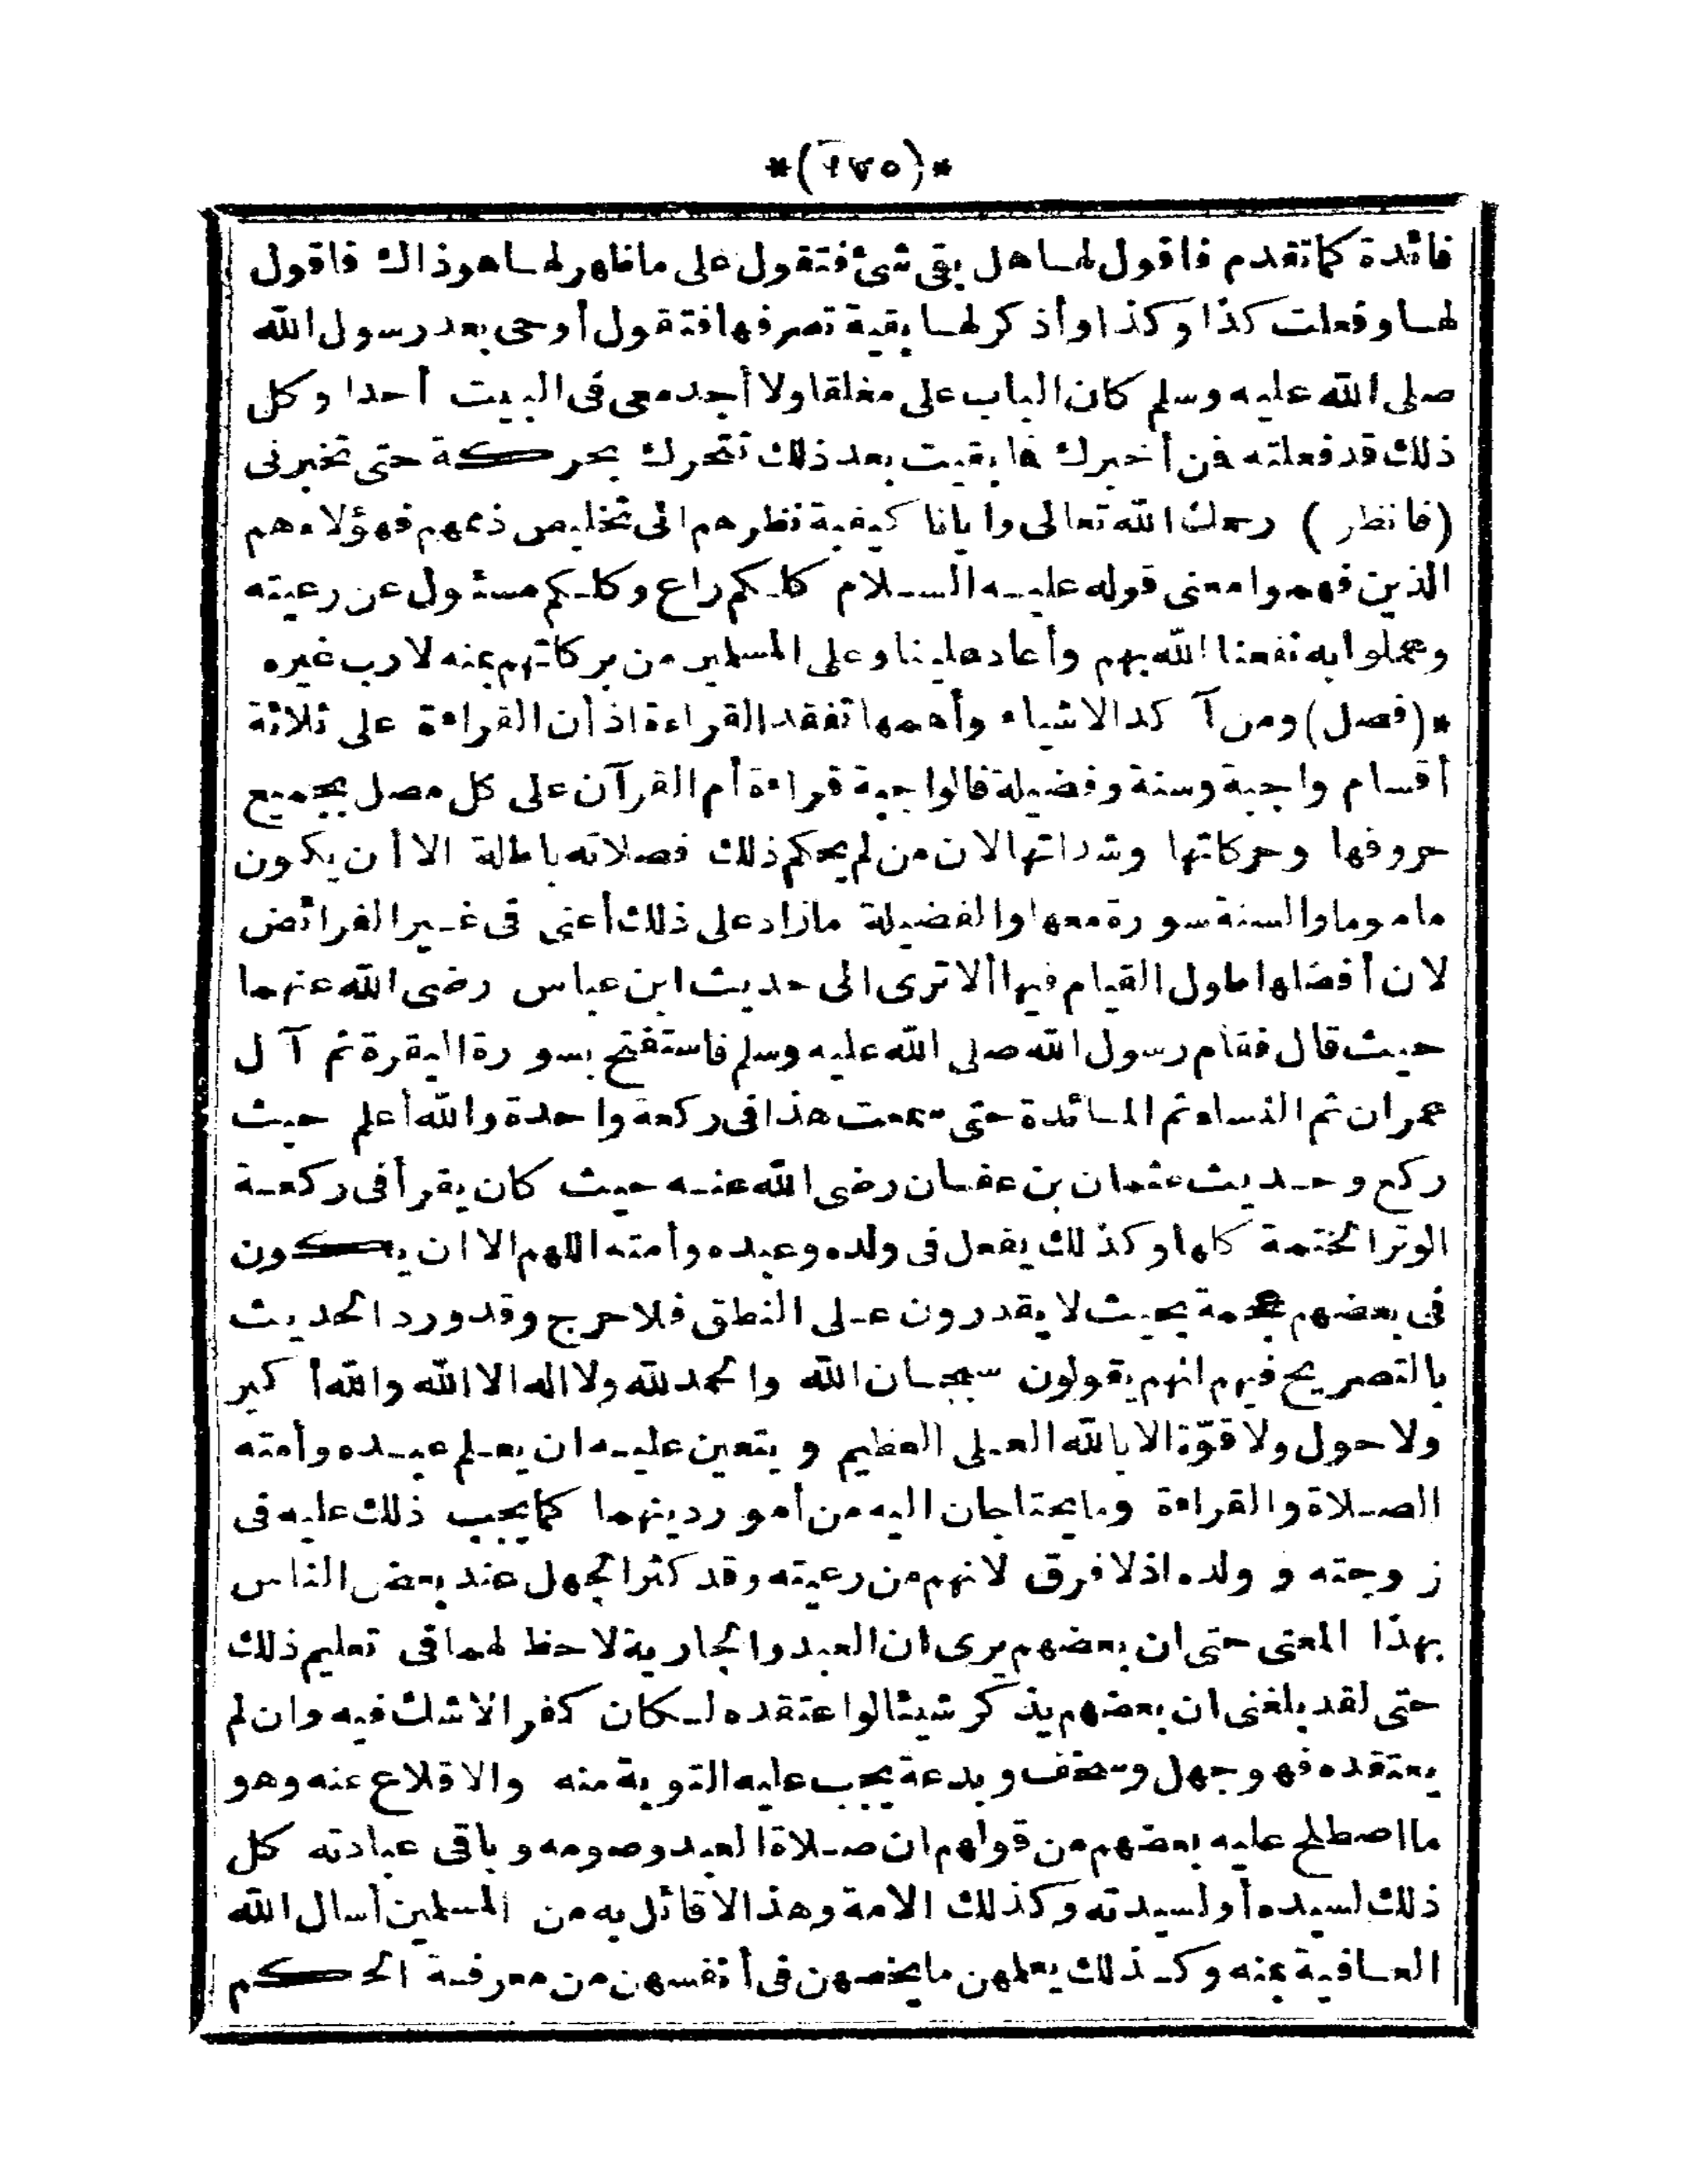 *(١٧٥)*
فائدة كما تقدم فاقول لها هل بقى شئ فتقول على ما ظهر لها هو ذاك فاقول
لها وفعلت كذا وكذا وأذكر لها بقية تصرفها فتقول أوحى بعد رسول الله
صلى الله عليه وسلم كان الباب على مغلقا ولا أجد معى فى البيت أحدا وكل
ذلك قد فعلته فمن أخبرك فما بقيت بعد ذلك تتحرك بحركة حتى تخبرنى
(فانظر) رحمك الله تعالى وايانا كيفية نظرهم الى تخليص ذممهم فهؤلاء هم
الذين فهموا معنى قوله عليه السلام كلكم راع وكلكم مسئول عن رعيته
وعملوا به نفعنا الله بهم وأعاد علينا وعلى المسلمين من بركاتهم بمنه لا رب غيره
*(فصل) ومن آكد الاشياء وأهمها تفقد القراءة اذ أن القراءة على ثلاثة
أقسام واجبة وسنة وفضيلة فالواجبة قراءة أم القرآن على كل مصل بجميع
حروفها وحركاتها وشداتها لان من لم يحكم ذلك فصلاته باطلة الا أن يكون
ماموما والسنة سورة معها والفضيلة ما زاد على ذلك أعنى فى غير الفرائض
لان أفضلها طول القيام فيها ألا ترى الى حديث ابن عباس رضى الله عنهما
حيث قال فقام رسول الله صلى الله عليه وسلم فاستفتح بسورة البقرة ثم آل
عمران ثم النساء ثم المائدة حتى سمعت هذا فى ركعة واحدة والله أعلم حيث
ركع وحديث عثمان بن عفان رضى الله عنه حيث كان يقرأ فى ركعة
الوتر الختمة كلها وكذلك يفعل فى ولده وعبده وأمته اللهم الا ان يكون
فى بعضهم عجمة بحيث لا يقدرون على النطق فلا حرج وقد ورد الحديث
بالتصريح فيهم انهم يقولون سبحان الله والحمد لله ولا اله الا الله والله أكبر
ولا حول ولا قوّة الا بالله العلى العظيم ويتعين عليه ان يعلم عبده وأمته
الصلاة والقراءة وما يحتاجان اليه من أمور دينهما كما يجب ذلك عليه فى
زوجته وولده اذ لا فرق لانهم من رعيته وقد كثر الجهل عند بعض الناس
بهذا المعنى حتى ان بعضهم يرى ان العبد والجارية لا حظ لهما فى تعليم ذلك
حتى لقد بلغنى ان بعضهم يذكر شيئا لو اعتقده لكان كفرا لا شك فيه وان لم
يعتقده فهو جهل وسخف وبدعة يجب عليه التوبة منه والاقلاع عنه وهو
ما اصطلح عليه بعضهم من قولهم ان صلاة العبد وصومه وباقى عبادته كل
ذلك لسيده أو لسيدته وكذلك الامة وهذا لا قائل به من المسلمين أسال الله
العافية بمنه وكذلك يعلمهن ما يخصهن فى أنفسهن من معرفة الحكم